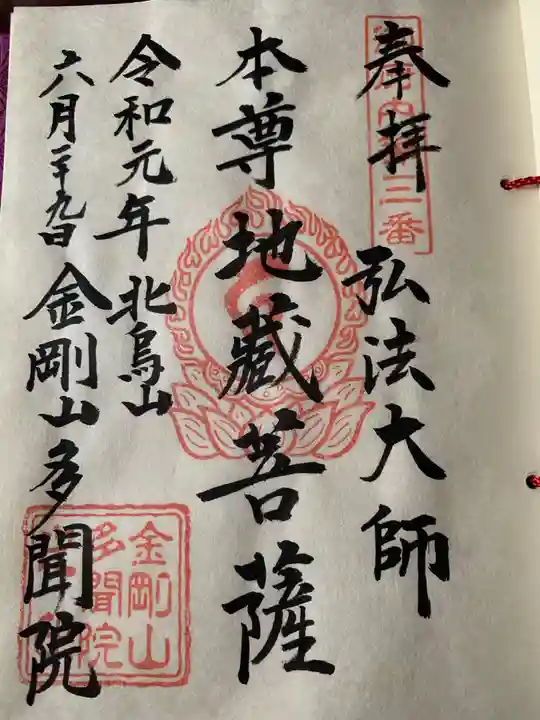 奉拝 弘法大師
三番
本尊地蔵菩薩
令和元年 北烏山
六月二十九日 金剛山多聞院
金剛山
多聞院